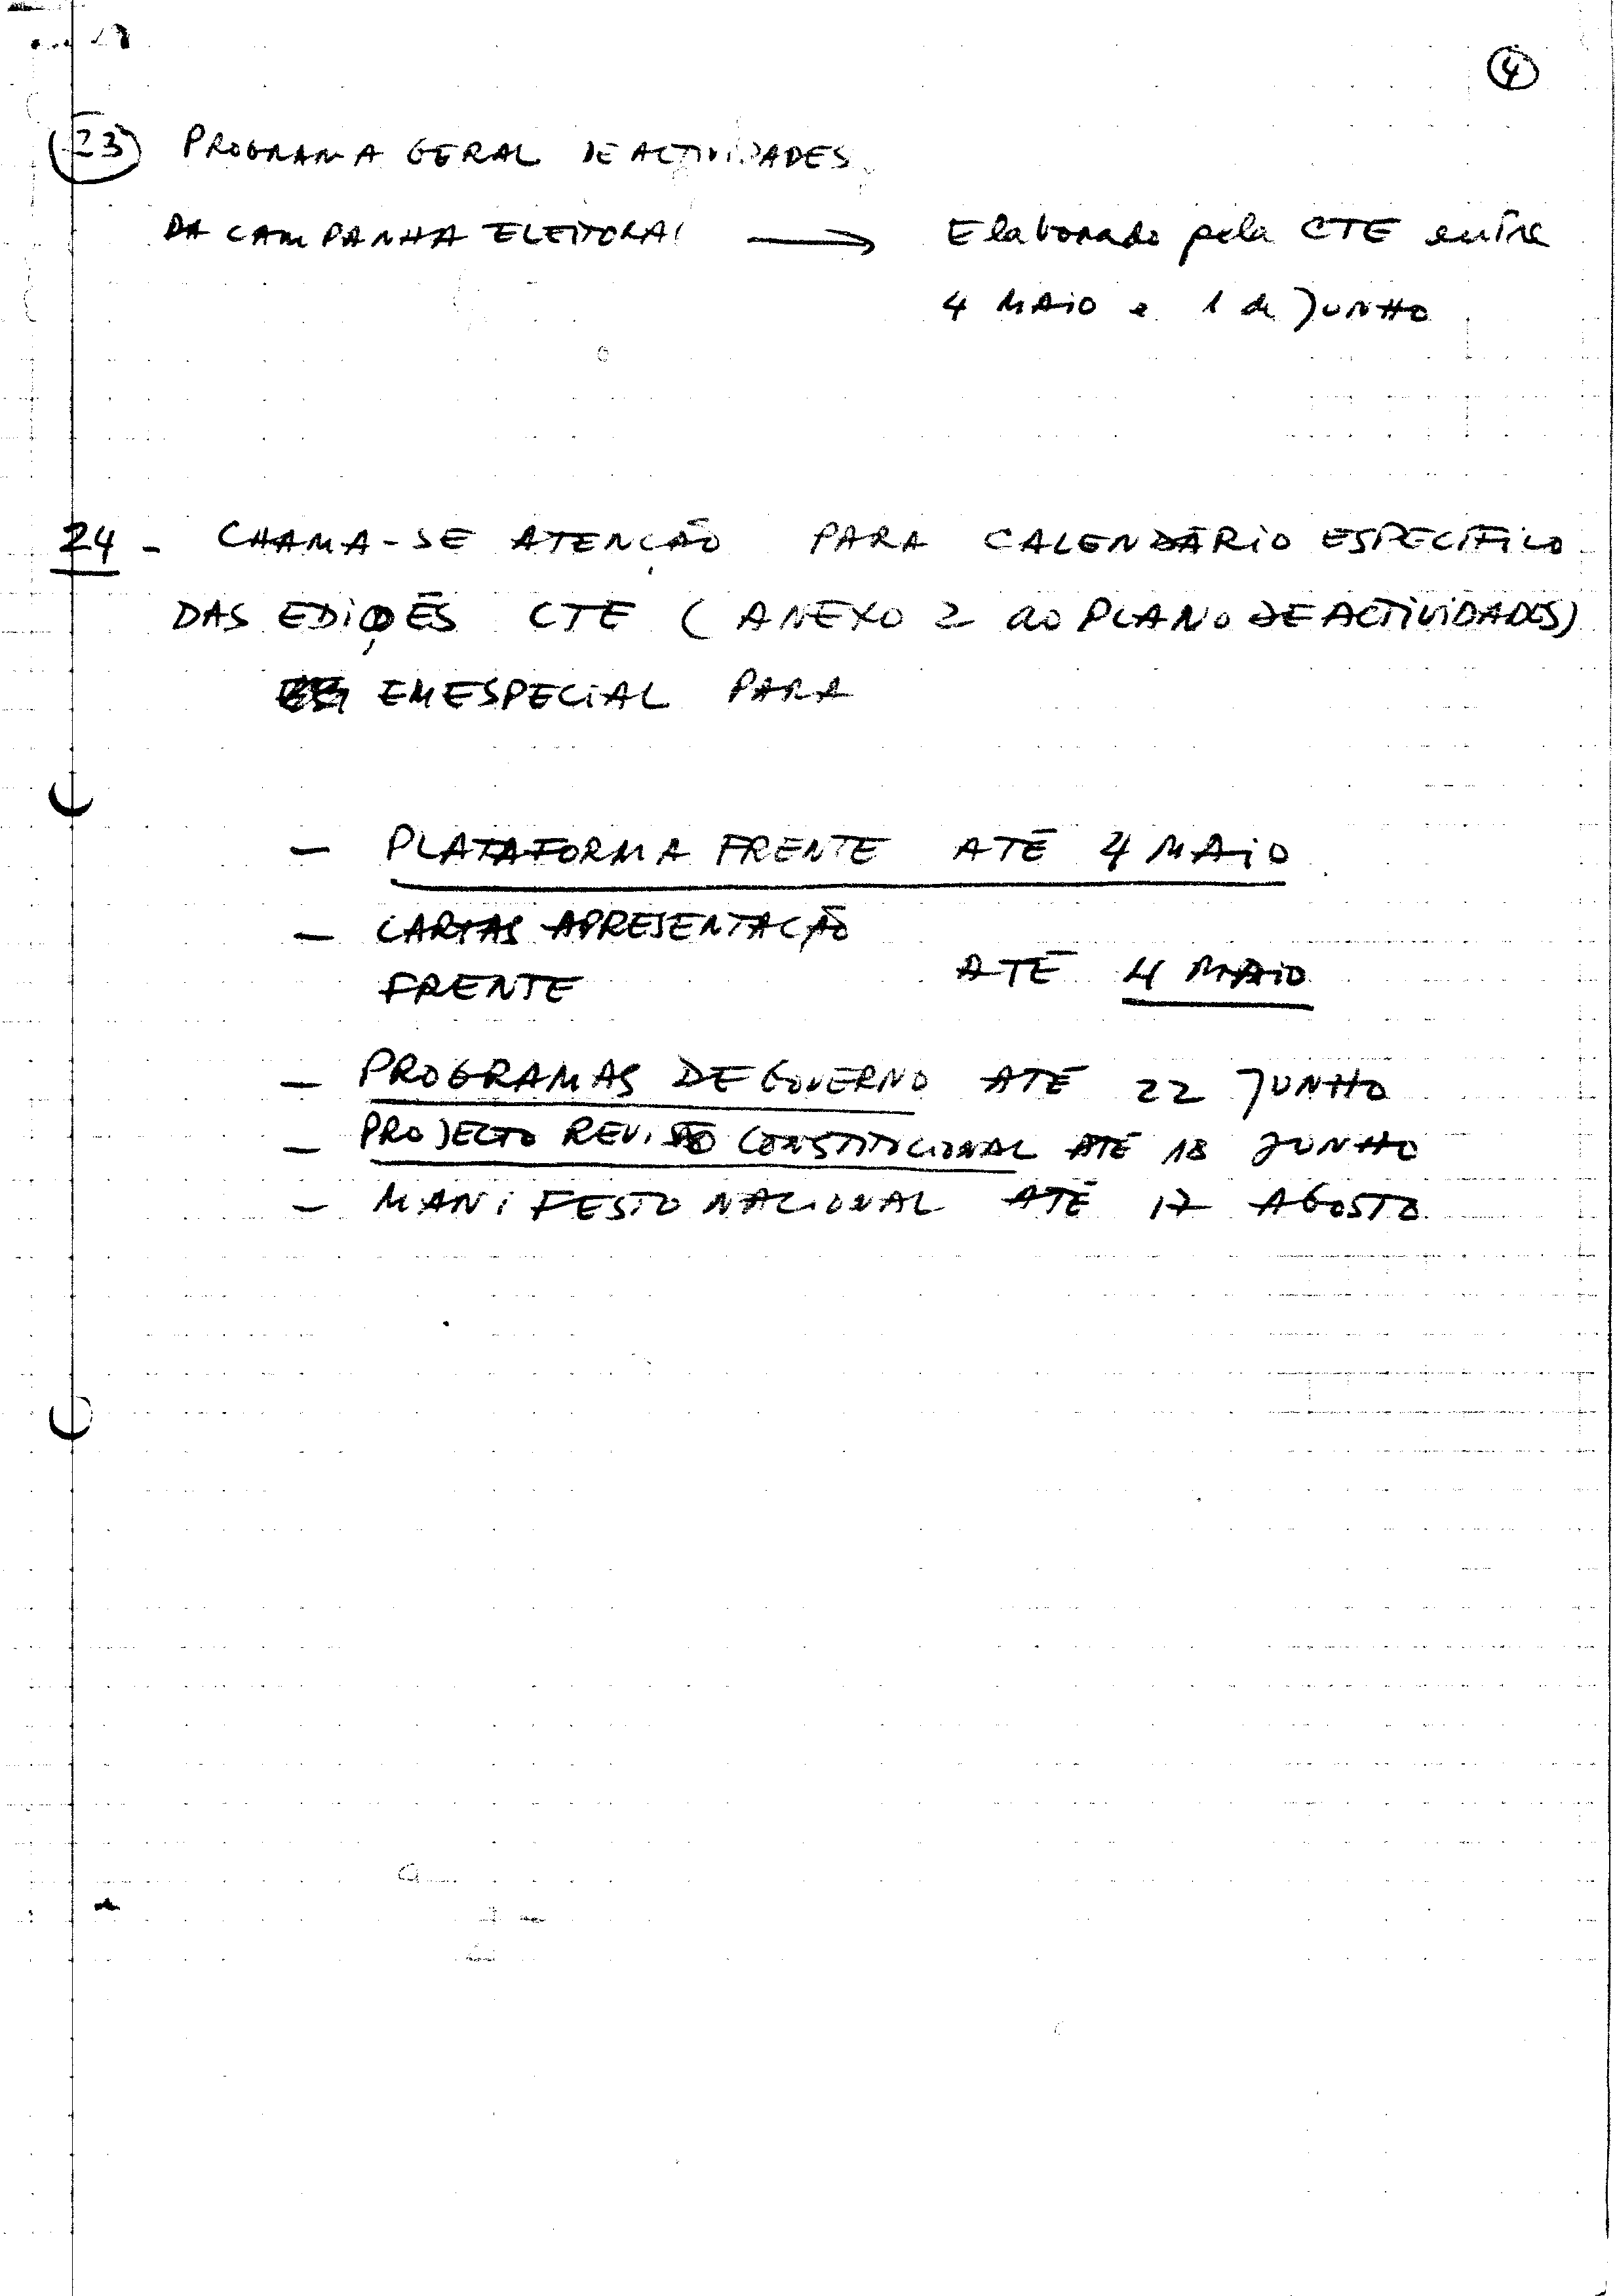 4
23 PROGRAMA GERAL DE ACTIVIDADES
DA CAMPANHA ELEITORAL → Elaborado pela CTE entre
4 MAIO e 1 de JUNHO
24 - CHAMA-SE ATENÇÃO PARA CALENDÁRIO ESPECÍFICO
DAS EDIÇÕES CTE (ANEXO 2 ao PLANO DE ACTIVIDADES)
EM ESPECIAL PARA
- PLATAFORMA FRENTE ATÉ 4 MAIO
- CARTAS APRESENTAÇÃO
FRENTE ATÉ 4 MAIO
- PROGRAMAS DE GOVERNO ATÉ 22 JUNHO
- PROJECTO REVISÃO CONSTITUCIONAL ATÉ 18 JUNHO
- MANIFESTO NACIONAL ATÉ 17 AGOSTO